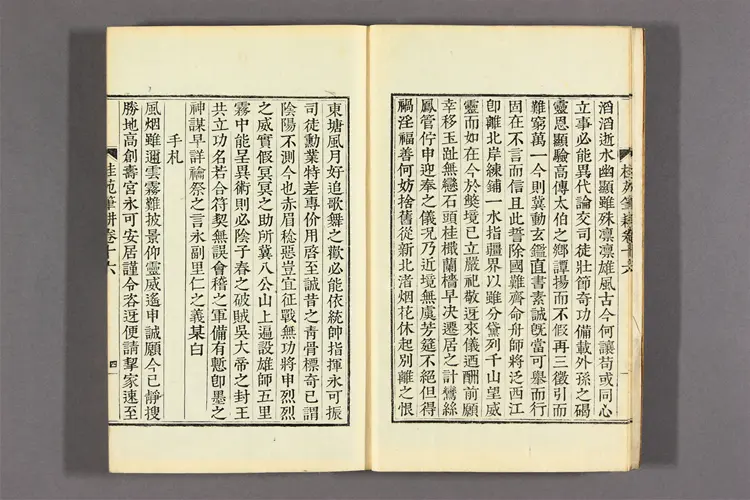 滔滔逝水幽顯雖殊凛凛雄風古今何讓苟或同心
立事必能異代論交司徒壯節奇功備載外孫之碣
靈恩顯驗高傳太伯之鄉譚揚而不假再三徵引而
難窮萬一今則冀動玄鑑直書素誠旣當可舉而行
固在不言而信且此誓除國難齊命舟師將泛西江
卽離北岸練鋪一水指疆界以雖分黛列千山望威
靈而如在今於奬境已立嚴祀敬迓來儀迺酬前願
幸移玉趾無戀石頭桂檝蘭橈早决遷居之計鸞絲
鳳管佇申迎奉之儀况乃近境無虞芳筵不絕但得
禍淫福善何妨捨舊從新北渚烟花休起別離之恨
桂苑筆耕卷十六
東塘風月好追歌舞之歡必能依統帥指揮永可振
司徒勳業特差專价用啓至誠昔之靑骨標奇已謂
陰陽不測今也赤眉稔惡豈宜征戰無功將申烈烈
之威實假冥冥之助所冀八公山上遍設雄師五里
霧中能呈異術則必陰子春之破賊吳大帝之封王
共立功名若合符契無誤會稽之軍備有慙卽墨之
神謀早詳禴祭之言永副里仁之義某白
手札
風烟雖邇雲霧難披景仰靈威遙申誠願今已靜搜
勝地高創壽宮永可安居謹令咨迓便請挈家速至
桂苑筆耕卷十六
四